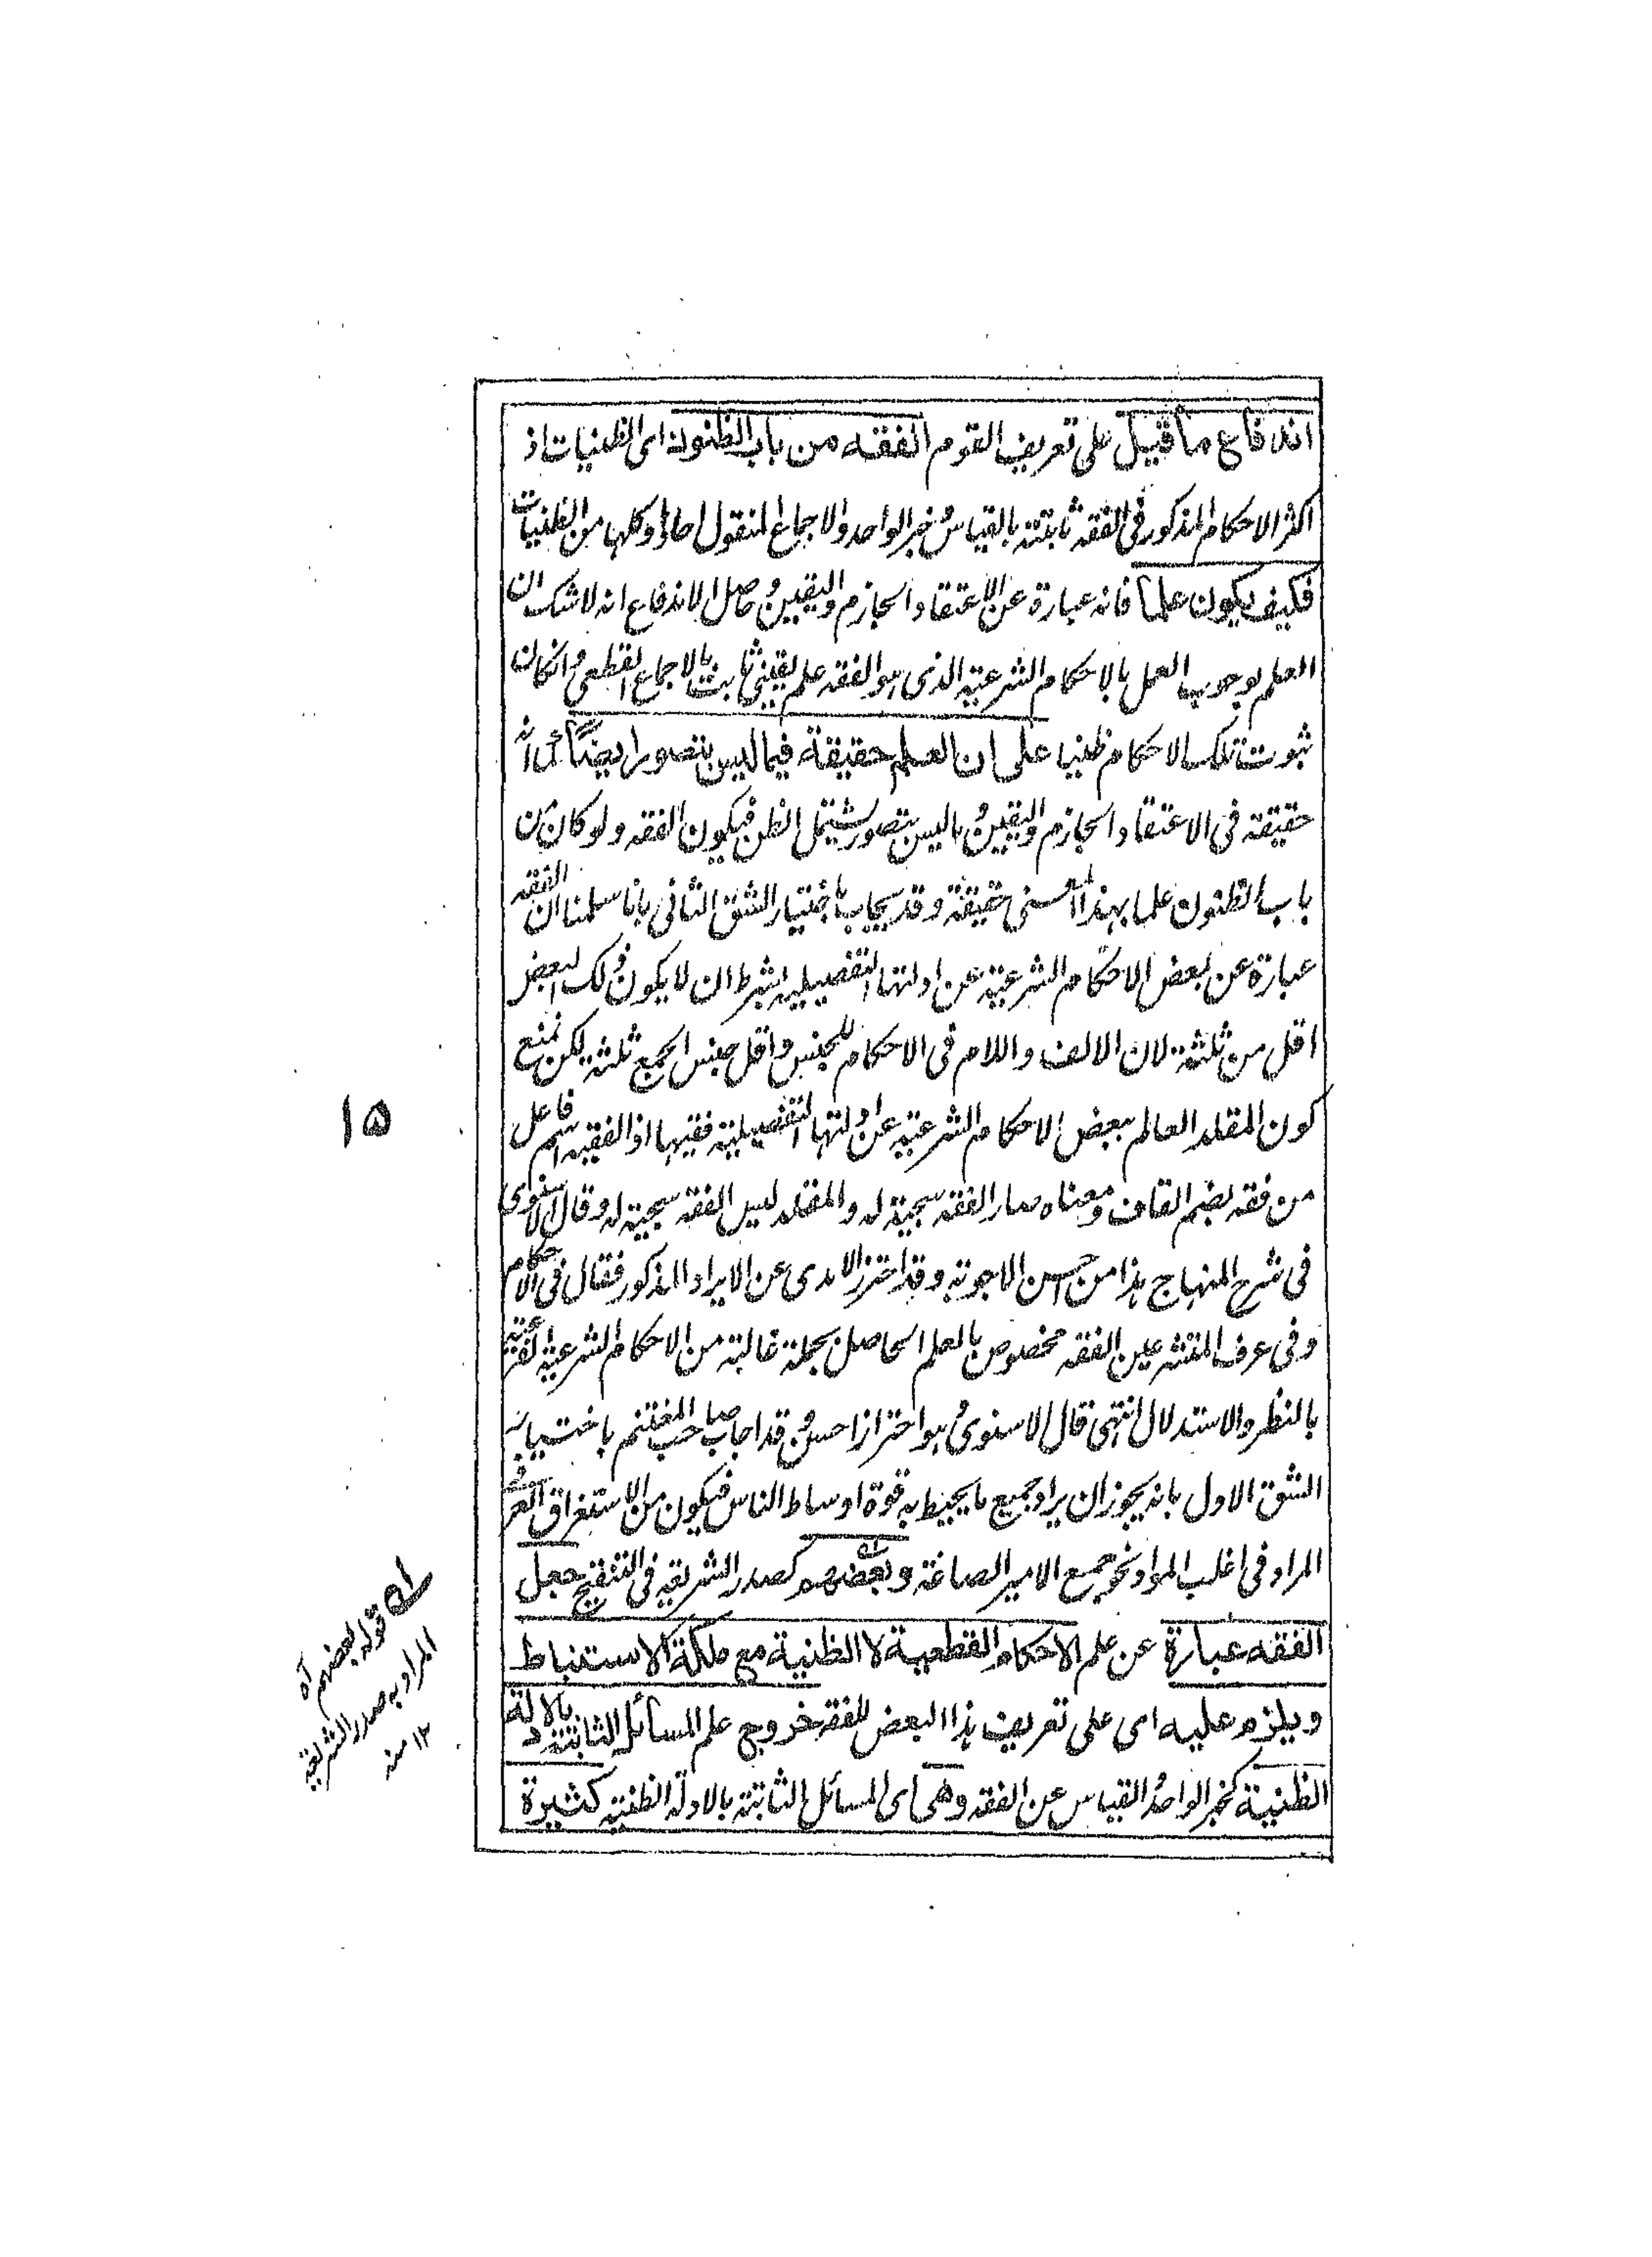 اندفاع ما قيل على تعريف القوم الفقه من باب الظنون اى الظنيات اذ
اكثر الاحكام المذكور فى الفقه ثابتة بالقياس و خبر الواحد والاجماع المنقول احادا وكلها من الظنيات
فكيف يكون علما فانه عبارة عن الاعتقاد الجازم واليقين و حاصل الاندفاع انه لا شك ان
العلم بوجوب العمل بالاحكام الشرعية الذى هو الفقه علم يقينى ثابت بالاجماع القطعى و انكان
ثبوت تلك الاحكام ظنيا على ان العلم حقيقة فيما ليس بتصور ايضا اى كما انه
حقيقة فى الاعتقاد الجازم واليقين و ما ليس بتصور يشتمل الظن فيكون الفقه ولو كان من
باب الظنون علما بهذا المعنى حقيقة و قد يجاب باختيار الشق الثانى بانا سلمنا ان الفقه
عبارة عن بعض الاحكام الشرعية عن ادلتها التفصيلية بشرط ان لا يكون ذلك البعض
اقل من ثلثة لان الالف واللام فى الاحكام للجنس واقل جنس الجمع ثلثة لكن نمنع
كون المقلد العالم ببعض الاحكام الشرعية عن ادلتها التفصيلية فقيها اذ الفقيه اسم فاعل
من فقه بضم القاف ومعناه صار الفقه سجية له والمقلد ليس الفقه سجية له وقال الاسنوى
فى شرح المنهاج هذا من احسن الاجوبة وقد احترز الامدى عن الايراد المذكور فقال فى الاحكام
وفى عرف المتشرعين الفقه مخصوص بالعلم الحاصل بجملة غالبة من الاحكام الشرعية الفرعية
بالنظر والاستدلال انتهى قال الاسنوى و هو احتراز احسن و قد اجاب صاحب المغتنم باختيار
الشق الاول بانه يجوز ان يراد جميع ما يحيط به قوة اوساط الناس فيكون من الاستغراق العرفى
المراد فى اغلب المواد نحو جمع الامير الصاغة وبعضهم كصدر الشريعة فى التنقيح جعل
الفقه عبارة عن علم الاحكام القطعية لا الظنية مع ملكة الاستنباط
ويلزم عليه اى على تعريف هذا البعض للفقه خروج علم المسائل الثابتة بالادلة
الظنية كخبر الواحد و القياس عن الفقه وهى اى المسائل الثابتة بالادلة الظنية كثيرة
١٥
قوله بعضهم آه
المراد به صدر الشريعة
١٢ منه